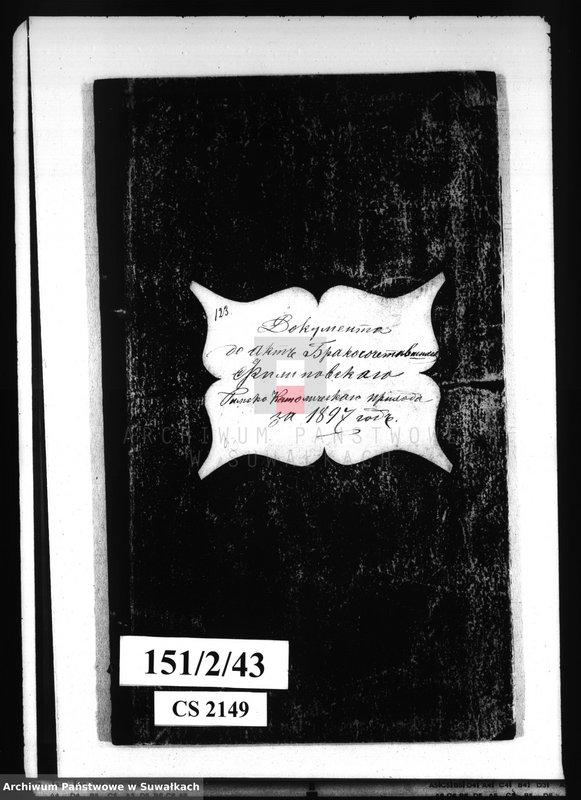 123.
Документа
до актъ Бракосочетавшихся
Филиповскаго
Римско Католическаго прихода
за 1897 годъ.
ARCHIWUM PAŃSTWOWE
W SUWAŁKACH
151/2/43
CS 2149
Archiwum Państwowe w Suwałkach